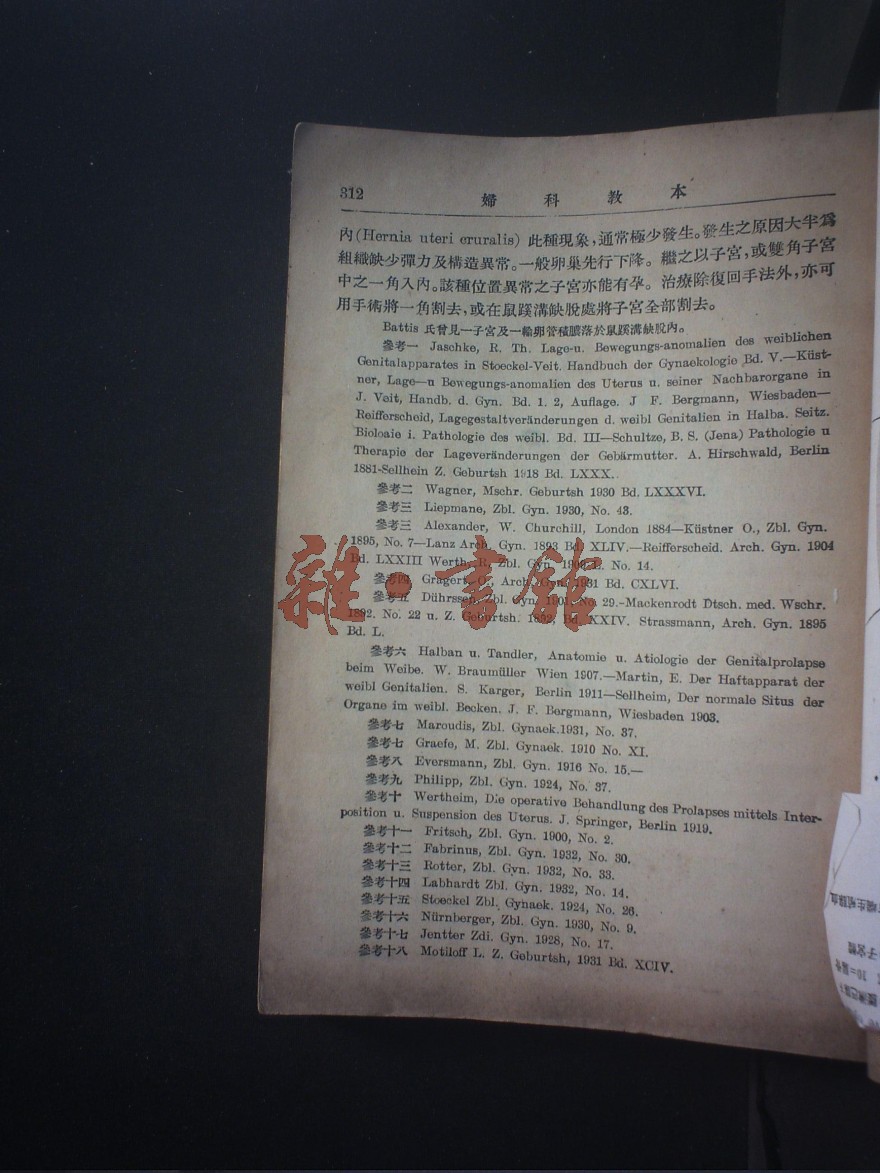 312 婦科教本
內(Hernia uteri cruralis) 此種現象,通常極少發生。發生之原因大半爲
組織缺少彈力及構造異常。一般卵巢先行下降。繼之以子宮,或雙角子宮
中之一角入內。該種位置異常之子宮亦能有孕。治療除復回手法外,亦可
用手術將一角割去,或在鼠蹊溝缺脫處將子宮全部割去。
Battis 氏曾見一子宮及一輸卵管積膿落於鼠蹊溝缺脫內。
參考一 Jaschke, R. Th. Lage-u. Bewegungs-anomalien des weiblichen
Genitalapparates in Stoeckel-Veit. Handbuch der Gynaekologie Bd. V.—Küst-
ner, Lage—u Bewegungs-anomalien des Uterus u. seiner Nachbarorgane in
J. Veit, Handb. d. Gyn. Bd. 1. 2, Auflage. J F. Bergmann, Wiesbaden—
Reifferscheid, Lagegestaltveränderungen d. weibl Genitalien in Halba. Seitz.
Bioloaie i. Pathologie des weibl. Bd. III—Schultze, B. S. (Jena) Pathologie u
Therapie der Lageveränderungen der Gebärmutter. A. Hirschwald, Berlin
1881-Sellhein Z. Geburtsh 1918 Bd. LXXX.
參考二 Wagner, Mschr. Geburtsh 1930 Bd. LXXXVI.
參考三 Liepmane, Zbl. Gyn. 1930, No. 43.
參考三 Alexander, W. Churchill, London 1884—Küstner O., Zbl. Gyn.
1895, No. 7—Lanz Arch. Gyn. 1893 Bd XLIV.—Reifferscheid. Arch. Gyn. 1904
Bd. LXXIII Werth, R, Zbl. Gyn. No. 14.
參考四 Gragert, O., Arch. Gyn. 1931 Bd. CXLVI.
參考五 Dührssen, Zbl. Gyn. No. 29.-Mackenrodt Dtsch. med. Wschr.
1892. No. 22 u. Z. Geburtsh. 1892. Bd. XXIV. Strassmann, Arch. Gyn. 1895
Bd. L.
參考六 Halban u. Tandler, Anatomie u. Atiologie der Genitalprolapse
beim Weibe. W. Braumüller Wien 1907.—Martin, E. Der Haftapparat der
weibl Genitalien. S. Karger, Berlin 1911—Sellheim, Der normale Situs der
Organe im weibl. Becken. J. F. Bergmann, Wiesbaden 1903.
參考七 Maroudis, Zbl. Gynaek.1931, No. 37.
參考七 Graefe, M. Zbl. Gynaek. 1910 No. XI.
參考八 Eversmann, Zbl. Gyn. 1916 No. 15.—
參考九 Philipp, Zbl. Gyn. 1924, No. 37.
參考十 Wertheim, Die operative Behandlung des Prolapses mittels Inter-
position u. Suspension des Uterus. J. Springer, Berlin 1919.
參考十一 Fritsch, Zbl. Gyn. 1900, No. 2.
參考十二 Fabrinus, Zbl. Gyn. 1932, No. 30.
參考十三 Rotter, Zbl. Gyn. 1932, No. 33.
參考十四 Labhardt Zbl. Gyn. 1932, No. 14.
參考十五 Stoeckel Zbl. Gynaek. 1924, No. 26.
參考十六 Nürnberger, Zbl. Gyn. 1930, No. 9.
參考十七 Jentter Zdi. Gyn. 1928, No. 17.
參考十八 Motiloff L. Z. Geburtsh, 1931 Bd. XCIV.
雜·書館